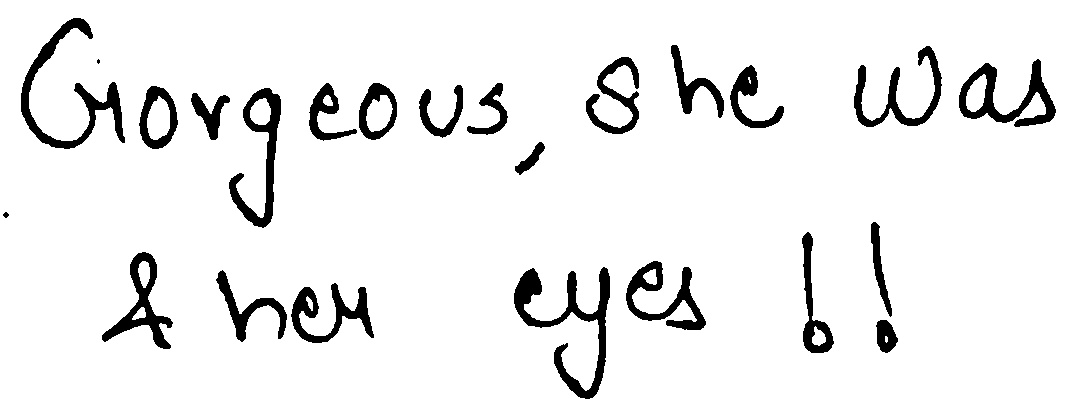 Gorgeous, she was
& her eyes !!